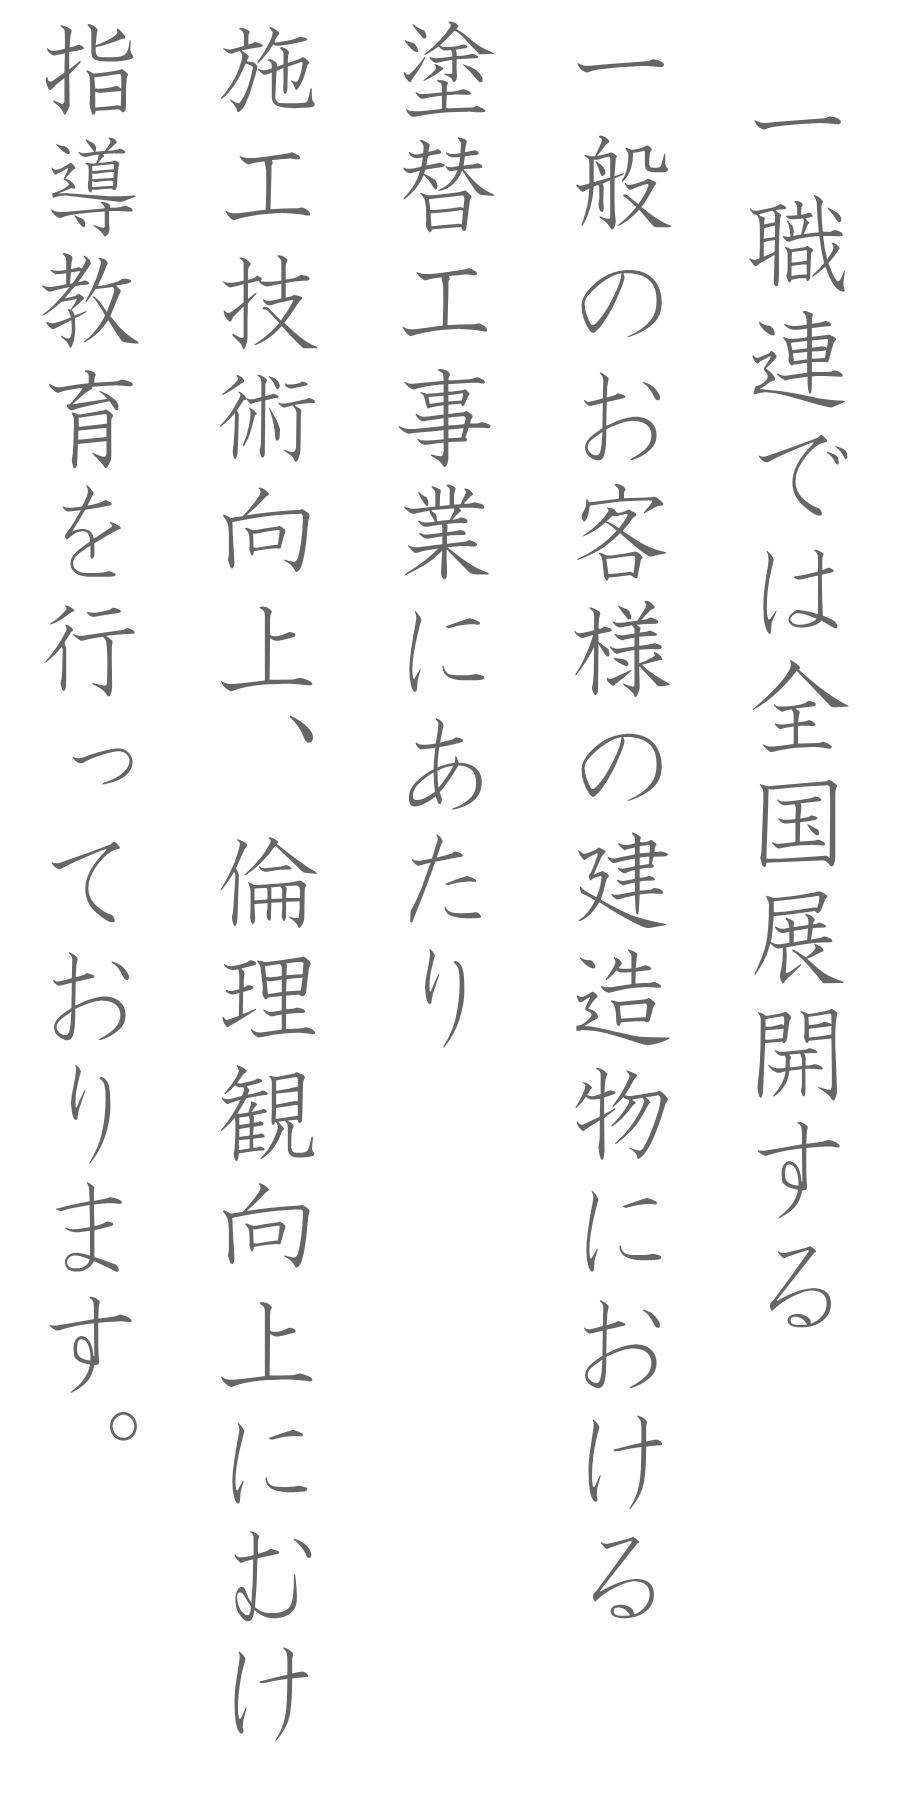 一職連では全国展開する
一般のお客様の建造物における
塗替工事業にあたり
施工技術向上、倫理観向上にむけ
指導教育を行っております。